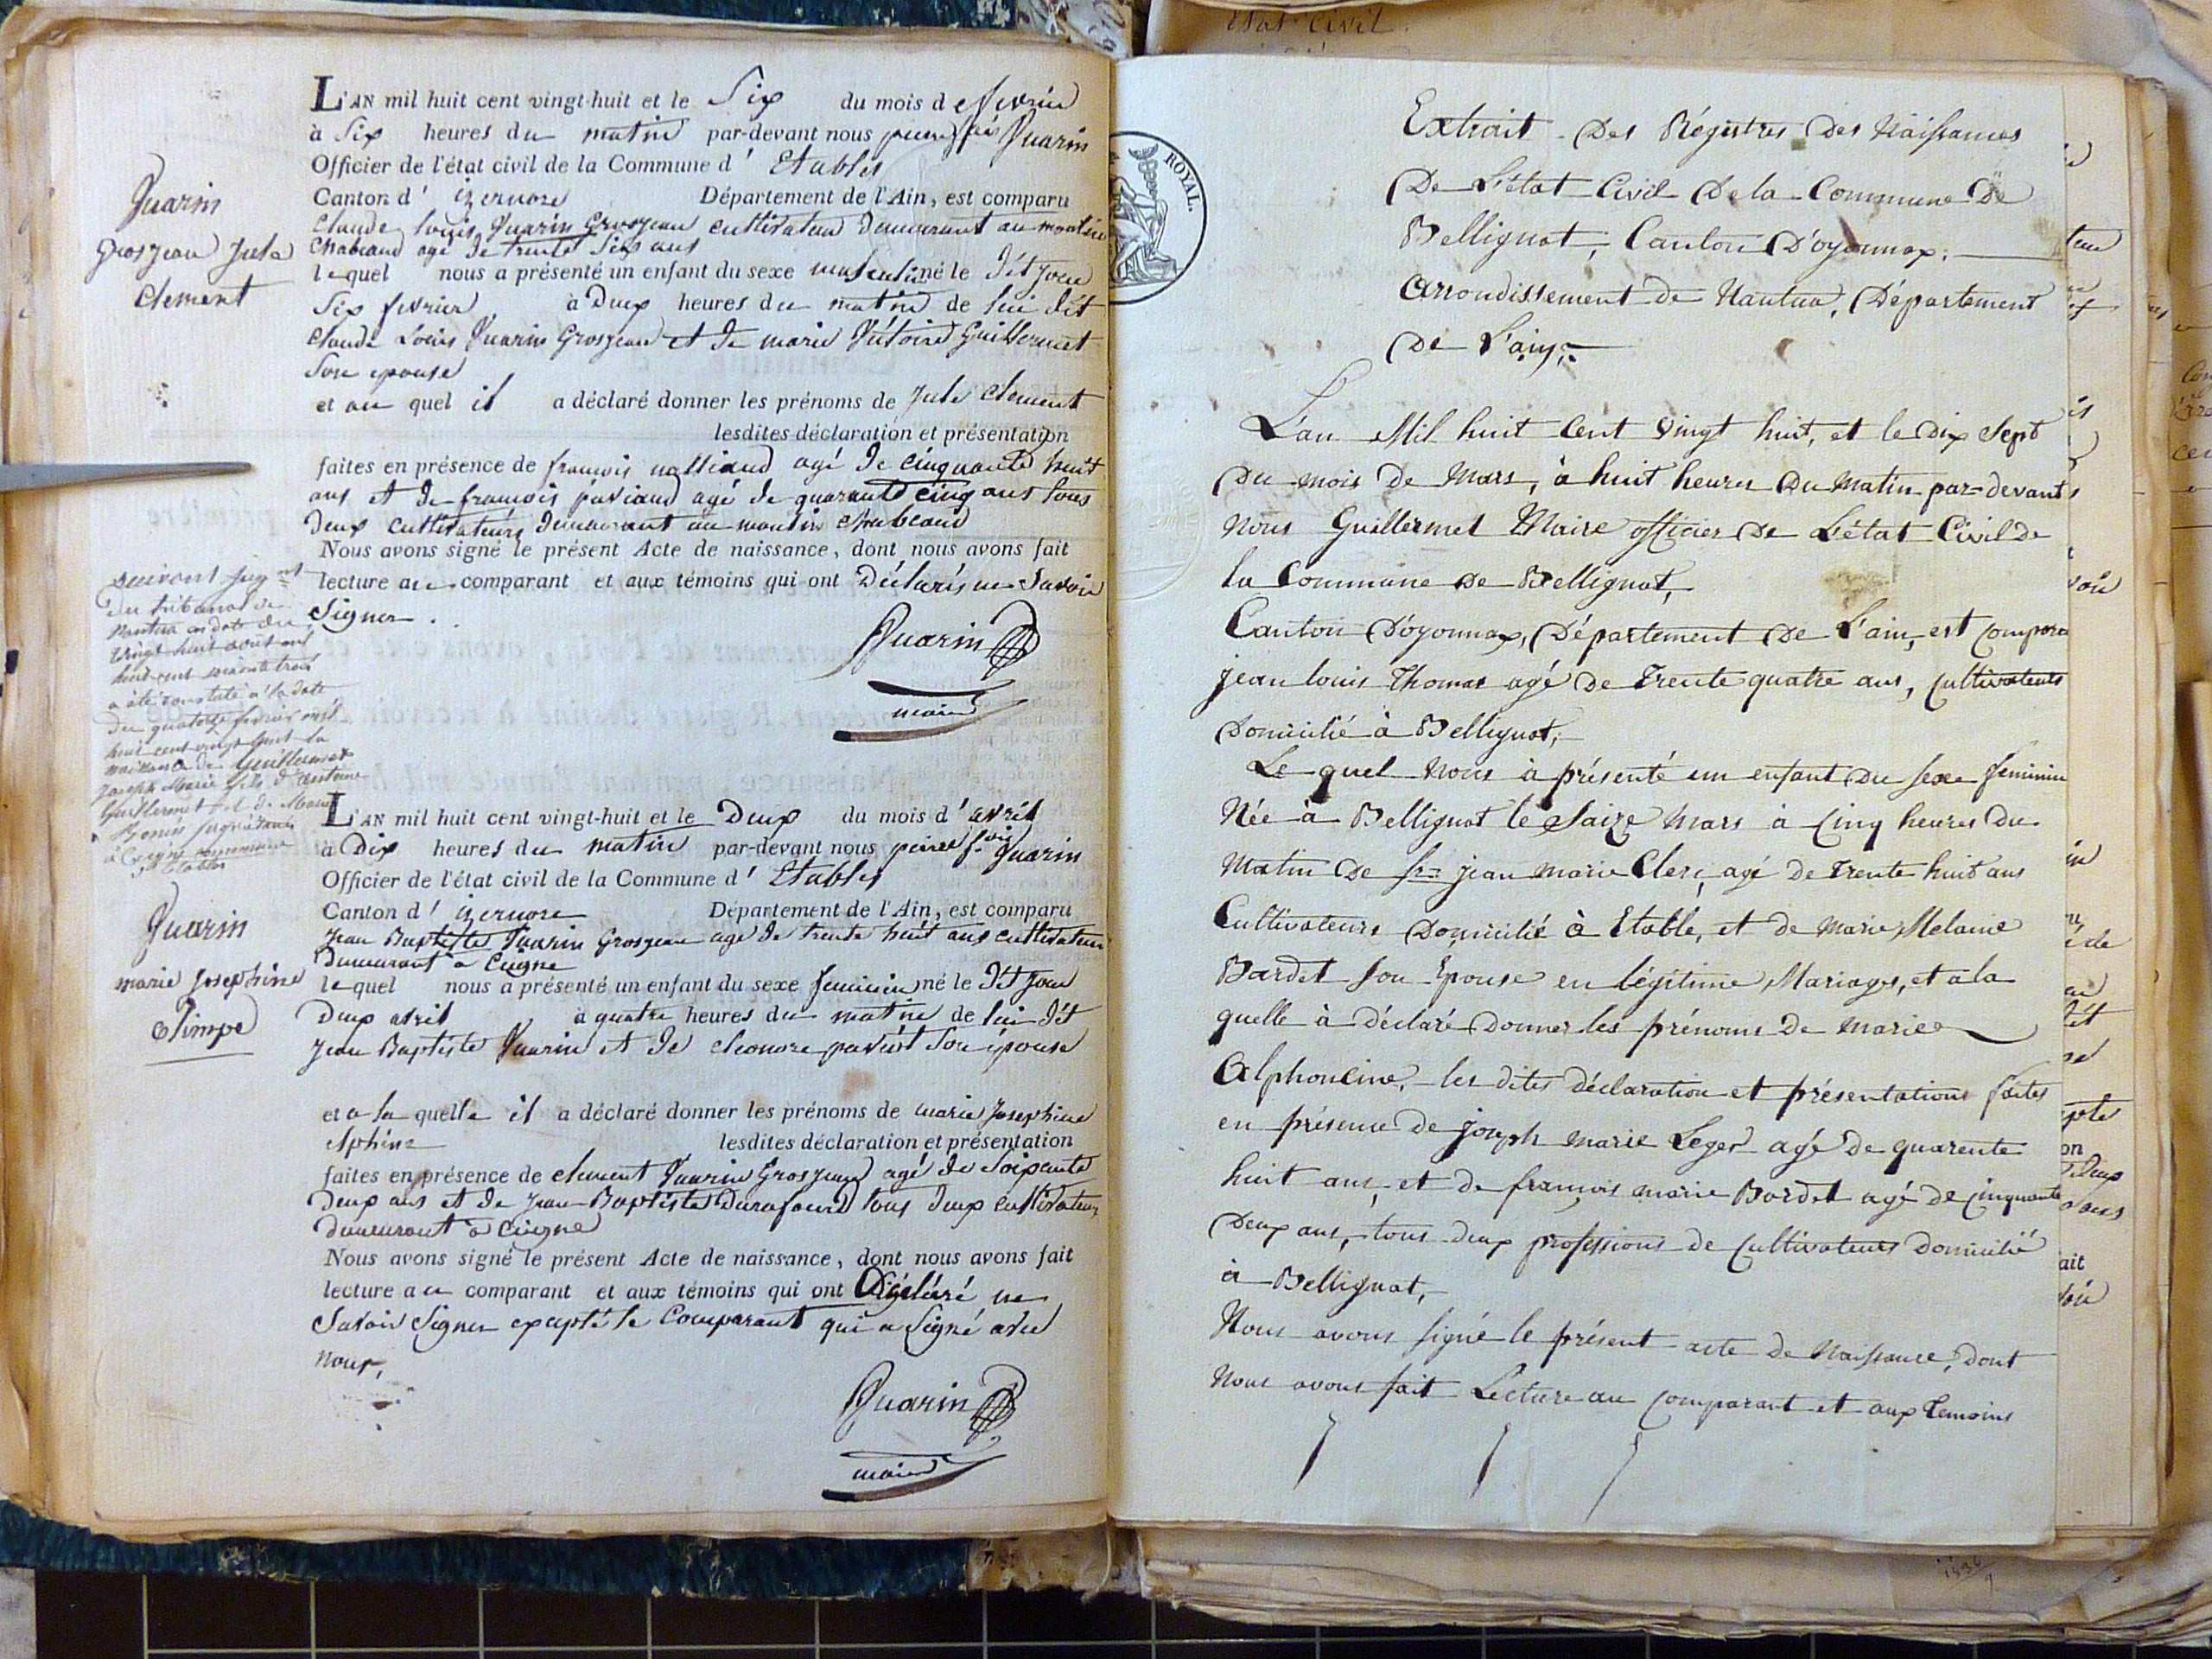 L'AN mil huit cent vingt-huit et le Six du mois de fevrier
à Six heures du matin par-devant nous pierre fois Quarin
Officier de l'état civil de la Commune d'Etables
Canton d'izernore Département de l'Ain, est comparu
Claude louis Quarin Grosjean cultivateur demeurant au moulin
Chabeaud agé de trente Six ans
lequel nous a présenté un enfant du sexe masculin né le dit jour
Six fevrier à Deux heures du matin de lui dit
Claude Louis Quarin Grosjean et de marie Victoire Guillermet
Son epouse
et au quel il a déclaré donner les prénoms de Jule Clement
lesdites déclaration et présentation
faites en présence de françois agé de cinquante huit
ans et de françois agé de quarante cinq ans tous
deux cultivateurs demeurant au moulin Chabeaud
Nous avons signé le présent Acte de naissance, dont nous avons fait
lecture au comparant et aux témoins qui ont Déclarés ne Savoir
Signer.
Quarin
maire
Quarin
Grosjean Jule
Clement
Suivant jugmt
du tribunal de
Nantua en date du
vingt huit août mil
huit cent soixante trois
a été constaté à la date
du quatorze février mil
huit cent vingt huit la
naissance de Guillermet
Joseph Marie fils d'antoine
Guillermet et de Marie
à Ceigne commune
d'Etables
L'AN mil huit cent vingt-huit et le Deux du mois d'avril
à Dix heures du matin par-devant nous pierre fois Quarin
Officier de l'état civil de la Commune d'Etables
Canton d'izernore Département de l'Ain, est comparu
Jean Baptiste Quarin Grosjean agé de trente huit ans cultivateur
Demeurant à Ceigne
lequel nous a présenté un enfant du sexe feminin né le dit jour
Deux avril à quatre heures du matin de lui dit
Jean Baptiste Quarin et de eleonore son epouse
et a la quelle il a déclaré donner les prénoms de marie Josephine
lesdites déclaration et présentation
faites en présence de clement Quarin Grosjean agé de Soixante
Deux ans et de Jean Baptiste Durafourd tous deux cultivateurs
demeurant à Ceigne
Nous avons signé le présent Acte de naissance, dont nous avons fait
lecture au comparant et aux témoins qui ont Déclaré ne
Savoir Signer excepté le Comparant qui a Signé avec
nous,
Quarin
maire
Quarin
marie Josephine
Olimpe
ROYAL.
Extrait Des Régistres Des Naissances
De L'état Civil De la Commune De
Bellignat, Canton D'oyonnax,
Arrondissement de Nantua, Département
De L'ain,
L'an Mil huit Cent Vingt huit, et le Dix Sept
Du mois de Mars, à huit heures Du Matin par-devant
Nous Guillermet Maire officier De L'état Civil de
la Commune De Bellignat,
Canton D'oyonnax, Département De L'ain, est compara
jean louis Thomas agé De Trente quatre ans, Cultivateurs
Domicilié à Bellignat,
Le quel Nous à présenté un enfant Du Sexe feminin
Née à Bellignat le Saize Mars à Cinq heures Du
Matin De Sr jean marie Clerc, agé de Trente huit ans
Cultivateurs Domicilié à Etable, et de Marie Melanie
Bardet Son Epouse en légitime Mariages, et à la
quelle à Déclaré Donner les prénoms De Marie
Alphoncine, les dites Déclaration et présentations faites
en présence de joseph marie Leger agé De quarente
huit ans, et de françois marie Bardet agé de Cinquante
Deux ans, tous deux professions de Cultivateurs Domicilié
à Bellignat,
Nous avons signé le présent acte de Naissance, dont
Nous avons fait Lecture au Comparant et aux Temoins